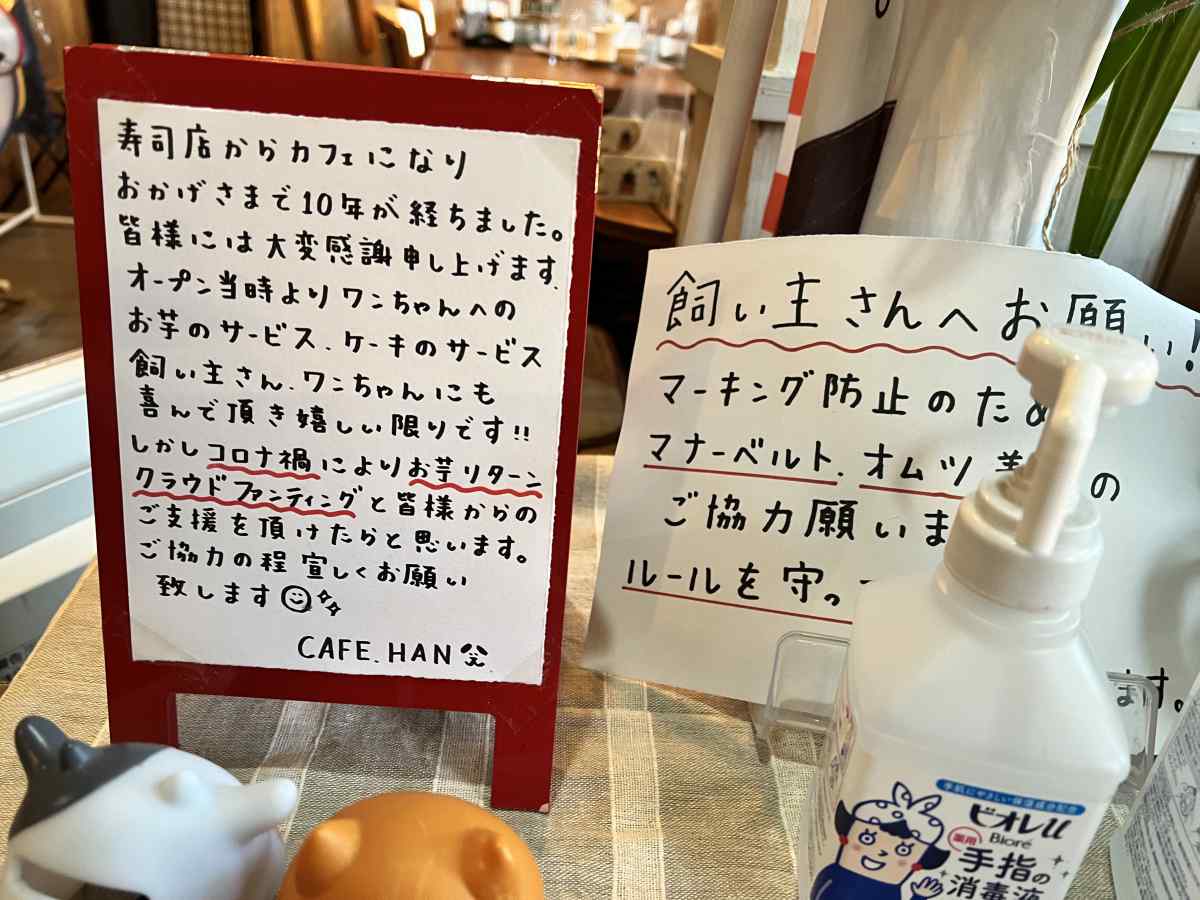 寿司店からカフェになり
おかげさまで10年が経ちました。
皆様には大変感謝申し上げます。
オープン当時よりワンちゃんへの
お芋のサービス、ケーキのサービス
飼い主さん、ワンちゃんにも
喜んで頂き嬉しい限りです!!
しかしコロナ禍によりお芋リターン
クラウドファンティングと皆様からの
ご支援を頂けたらと思います。
ご協力の程宜しくお願い
致します
CAFE.HAN
飼い主さんへお願い!
マーキング防止のため
マナーベルト、オムツ の
ご協力願いま
ルールを守っ
ます。
手肌にやさしい保湿成分配合
ビオレu
Bioré
薬用
手指の
消毒液